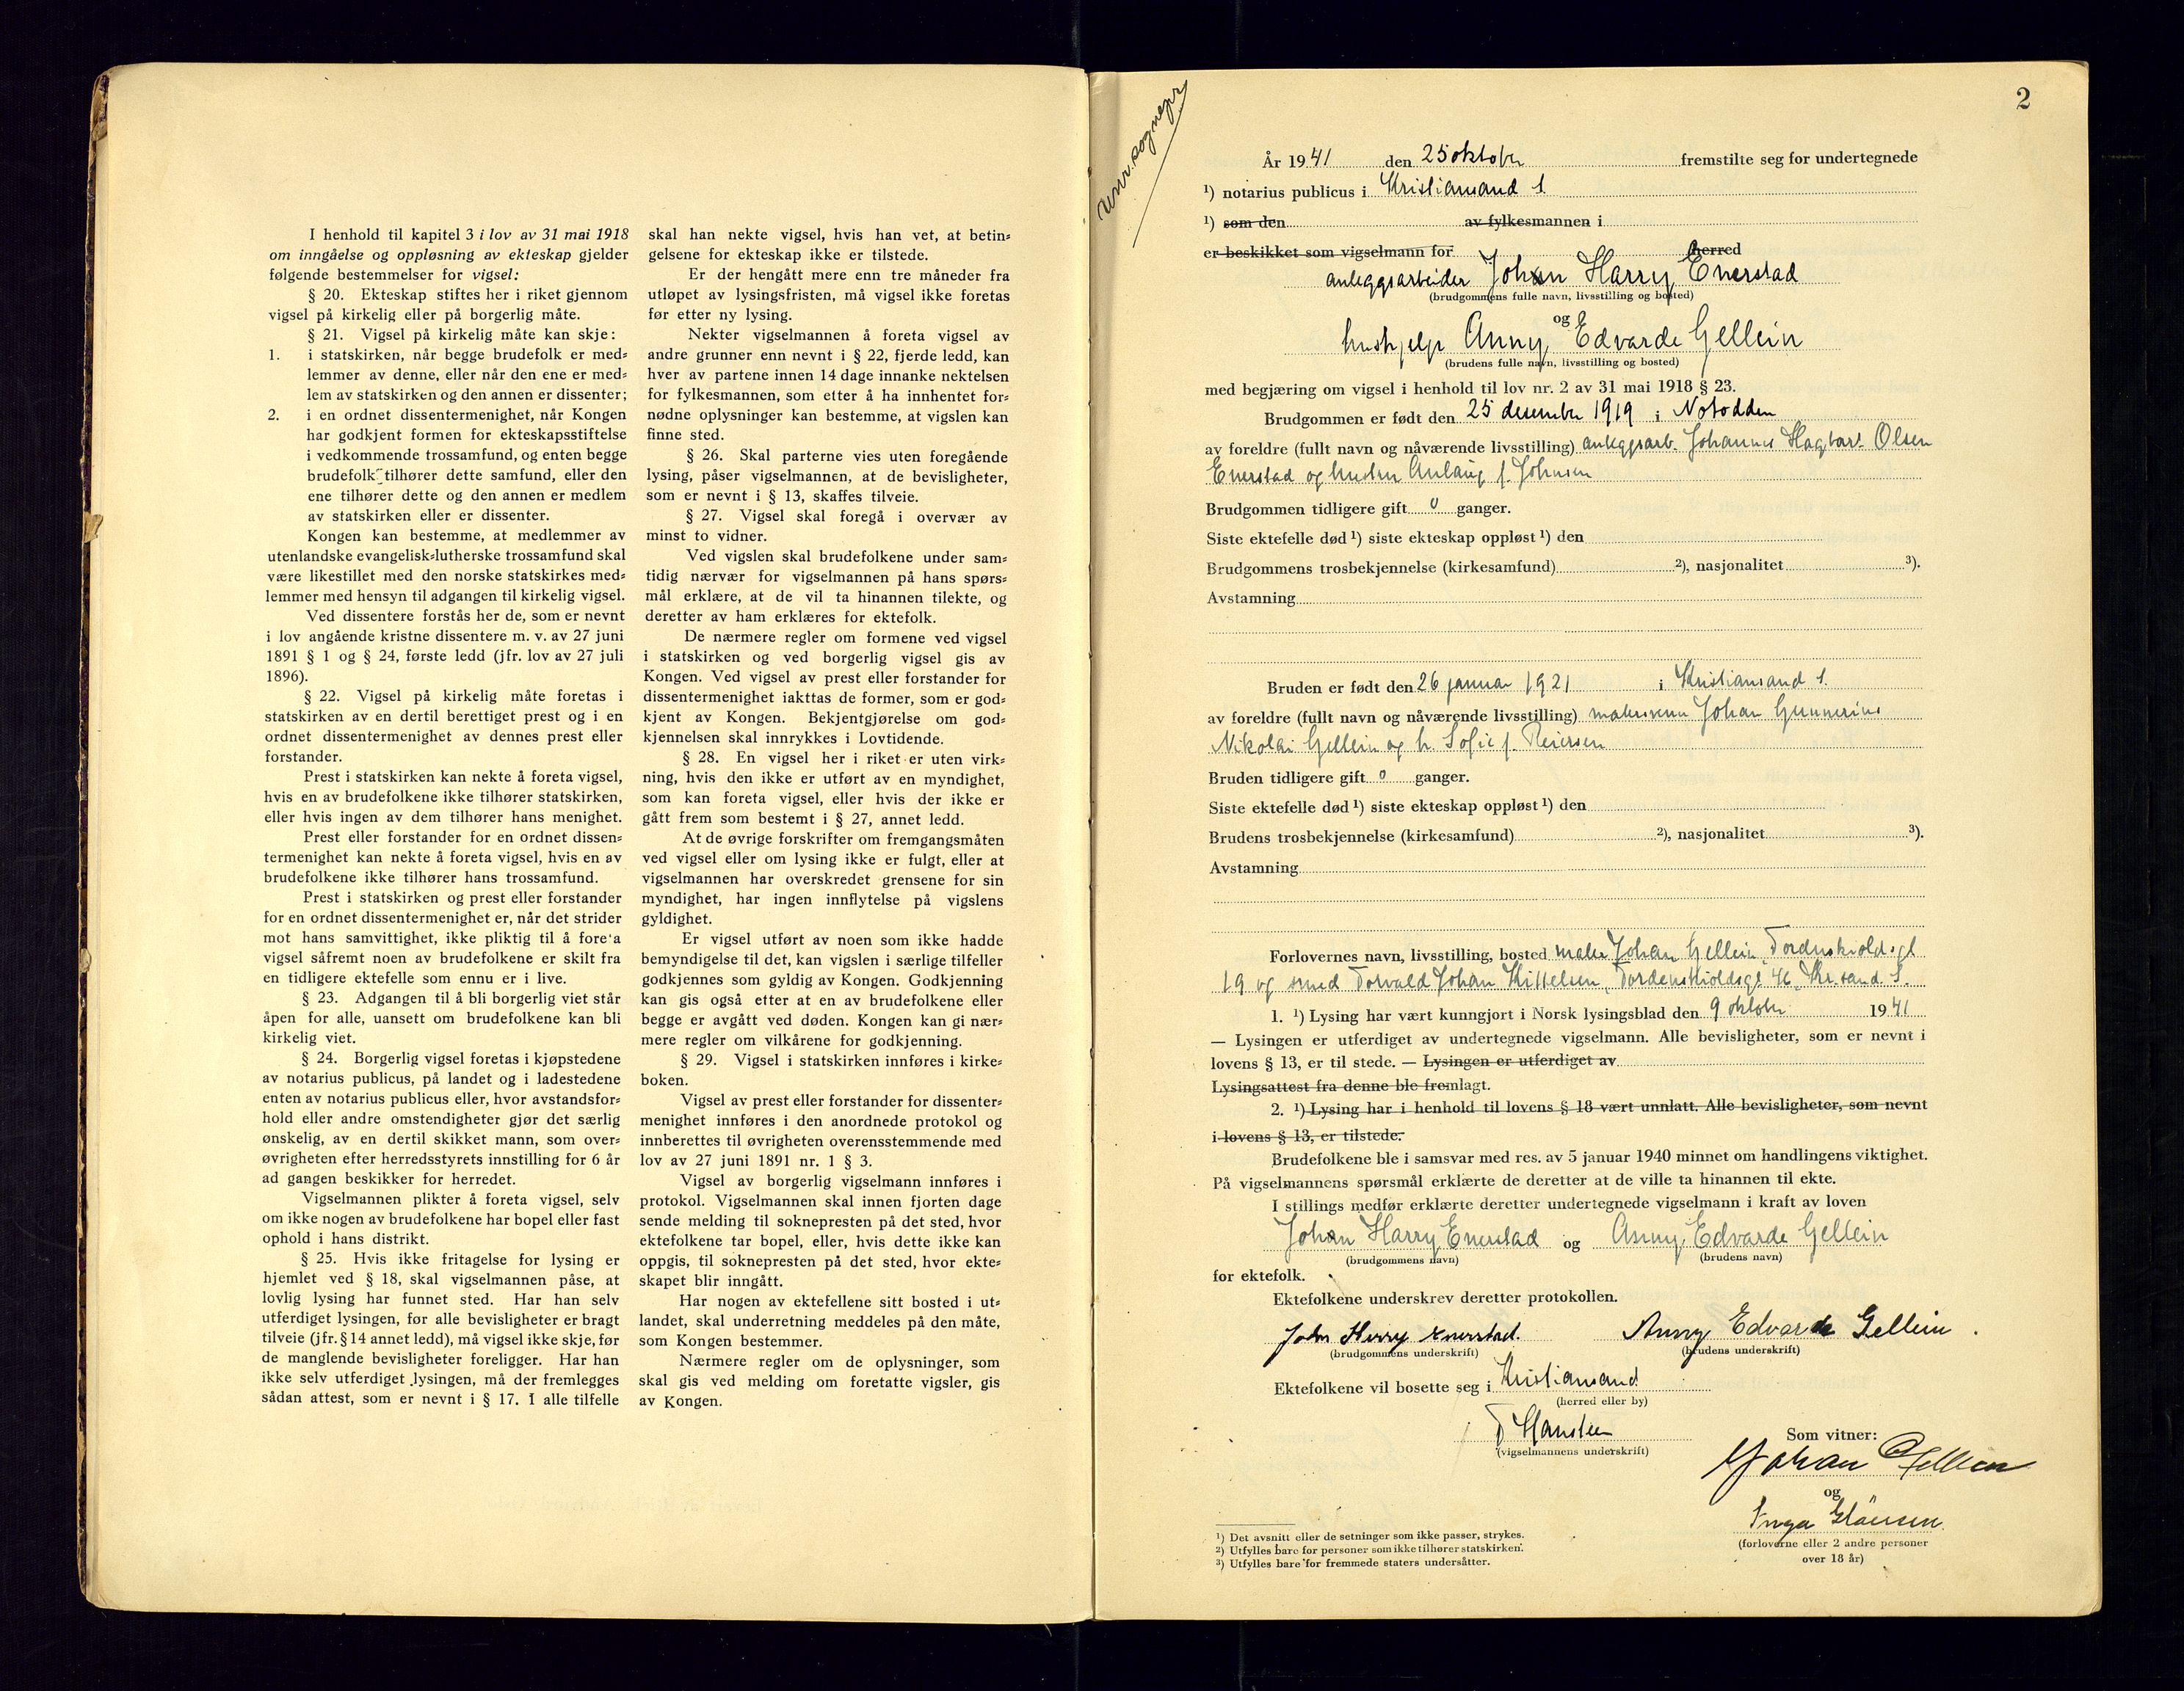 I henhold til kapitel 3 i lov av 31 mai 1918
om inngåelse og oppløsning av ekteskap gjelder
følgende bestemmelser for vigsel:
§ 20. Ekteskap stiftes her i riket gjennom
vigsel på kirkelig eller på borgerlig måte.
§ 21. Vigsel på kirkelig måte kan skje:
1. i statskirken, når begge brudefolk er med=
lemmer av denne, eller når den ene er med=
lem av statskirken og den annen er dissenter;
2. i en ordnet dissentermenighet, når Kongen
har godkjent formen for ekteskapsstiftelse
i vedkommende trossamfund, og enten begge
brudefolk tilhører dette samfund, eller den
ene tilhører dette og den annen er medlem
av statskirken eller er dissenter.
Kongen kan bestemme, at medlemmer av
utenlandske evangelisk=lutherske trossamfund skal
være likestillet med den norske statskirkes med=
lemmer med hensyn til adgangen til kirkelig vigsel.
Ved dissentere forstås her de, som er nevnt
i lov angående kristne dissentere m. v. av 27 juni
1891 § 1 og § 24, første ledd (jfr. lov av 27 juli
1896).
§ 22. Vigsel på kirkelig måte foretas i
statskirken av en dertil berettiget prest og i en
ordnet dissentermenighet av dennes prest eller
forstander.
Prest i statskirken kan nekte å foreta vigsel,
hvis en av brudefolkene ikke tilhører statskirken,
eller hvis ingen av dem tilhører hans menighet.
Prest eller forstander for en ordnet dissen=
termenighet kan nekte å foreta vigsel, hvis en av
brudefolkene ikke tilhører hans trossamfund.
Prest i statskirken og prest eller forstander
for en ordnet dissentermenighet er, når det strider
mot hans samvittighet, ikke pliktig til å fore'a
vigsel såfremt noen av brudefolkene er skilt fra
en tidligere ektefelle som ennu er i live.
§ 23. Adgangen til å bli borgerlig viet står
åpen for alle, uansett om brudefolkene kan bli
kirkelig viet.
§ 24. Borgerlig vigsel foretas i kjøpstedene
av notarius publicus, på landet og i ladestedene
enten av notarius publicus eller, hvor avstandsfor=
hold eller andre omstendigheter gjør det særlig
ønskelig, av en dertil skikket mann, som over=
øvrigheten efter herredsstyrets innstilling for 6 år
ad gangen beskikker for herredet.
Vigselmannen plikter å foreta vigsel, selv
om ikke nogen av brudefolkene har bopel eller fast
ophold i hans distrikt.
§ 25. Hvis ikke fritagelse for lysing er
hjemlet ved § 18, skal vigselmannen påse, at
lovlig lysing har funnet sted. Har han selv
utferdiget lysingen, før alle bevisligheter er bragt
tilveie (jfr. § 14 annet ledd), må vigsel ikke skje, før
de manglende bevisligheter foreligger. Har han
ikke selv utferdiget lysingen, må der fremlegges
sådan attest, som er nevnt i § 17. I alle tilfelle
skal han nekte vigsel, hvis han vet, at betin=
gelsene for ekteskap ikke er tilstede.
Er der hengått mere enn tre måneder fra
utløpet av lysingsfristen, må vigsel ikke foretas
før etter ny lysing.
Nekter vigselmannen å foreta vigsel av
andre grunner enn nevnt i § 22, fjerde ledd, kan
hver av partene innen 14 dage innanke nektelsen
for fylkesmannen, som etter å ha innhentet for=
nødne oplysninger kan bestemme, at vigslen kan
finne sted.
§ 26. Skal parterne vies uten foregående
lysing, påser vigselmannen, at de bevisligheter,
som er nevnt i § 13, skaffes tilveie.
§ 27. Vigsel skal foregå i overvær av
minst to vidner.
Ved vigslen skal brudefolkene under sam=
tidig nærvær for vigselmannen på hans spørs=
mål erklære, at de vil ta hinannen tilekte, og
deretter av ham erklæres for ektefolk.
De nærmere regler om formene ved vigsel
i statskirken og ved borgerlig vigsel gis av
Kongen. Ved vigsel av prest eller forstander for
dissentermenighet iakttas de former, som er god=
kjent av Kongen. Bekjentgjørelse om god=
kjennelsen skal innrykkes i Lovtidende.
§ 28. En vigsel her i riket er uten virk=
ning, hvis den ikke er utført av en myndighet,
som kan foreta vigsel, eller hvis der ikke er
gått frem som bestemt i § 27, annet ledd.
At de øvrige forskrifter om fremgangsmåten
ved vigsel eller om lysing ikke er fulgt, eller at
vigselmannen har overskredet grensene for sin
myndighet, har ingen innflytelse på vigslens
gyldighet.
Er vigsel utført av noen som ikke hadde
bemyndigelse til det, kan vigslen i særlige tilfeller
godkjennes som gyldig av Kongen. Godkjenning
kan gis også etter at en av brudefolkene eller
begge er avgått ved døden. Kongen kan gi nær=
mere regler om vilkårene for godkjenning.
§ 29. Vigsel i statskirken innføres i kirke=
boken.
Vigsel av prest eller forstander for dissenter=
menighet innføres i den anordnede protokol og
innberettes til øvrigheten overensstemmende med
lov av 27 juni 1891 nr. 1 § 3.
Vigsel av borgerlig vigselmann innføres i
protokol. Vigselmannen skal innen fjorten dage
sende melding til soknepresten på det sted, hvor
ektefolkene tar bopel, eller, hvis dette ikke kan
oppgis, til soknepresten på det sted, hvor ekte=
skapet blir inngått.
Har nogen av ektefellene sitt bosted i ut=
landet, skal underretning meddeles på den måte,
som Kongen bestemmer.
Nærmere regler om de oplysninger, som
skal gis ved melding om foretatte vigsler, gis
av Kongen.
2
sognepr
År 1941 den 25 oktober fremstilte seg for undertegnede
1) notarius publicus i Kristiansand S.
1) som den av fylkesmannen i
er beskikket som vigselmann for herred
anleggsarbeider Johan Harry Enerstad
(brudgommens fulle navn, livsstilling og bosted)
og
hushjelp Anny Edvarde Gellein
(brudens fulle navn, livsstilling og bosted)
med begjæring om vigsel i henhold til lov nr. 2 av 31 mai 1918 § 23.
Brudgommen er født den 25 desember 1919 i Notodden
av foreldre (fullt navn og nåværende livsstilling) anleggsarb. Johannes Hagbart Olsen
Enerstad og hustru Anlaug f. Johnsen
Brudgommen tidligere gift 0 ganger.
Siste ektefelle død 1) siste ekteskap oppløst 1) den
Brudgommens trosbekjennelse (kirkesamfund) 2), nasjonalitet 3).
Avstamning
Bruden er født den 26 januar 1921 i Kristiansand S.
av foreldre (fullt navn og nåværende livsstilling) malersvenn Johan Gunnerius
Nikolai Gellein og h. Sofie f. Reiersen
Bruden tidligere gift 0 ganger.
Siste ektefelle død 1) siste ekteskap oppløst 1) den
Brudens trosbekjennelse (kirkesamfund) 2), nasjonalitet 3).
Avstamning
Forlovernes navn, livsstilling, bosted maler Johan Gellein, Tordenskioldsgt
19 og smed Torvald Johan Kittelsen, Tordenskioldsgt. 46, Kr.sand S.
1. 1) Lysing har vært kunngjort i Norsk lysingsblad den 9 oktober 1941
— Lysingen er utferdiget av undertegnede vigselmann. Alle bevisligheter, som er nevnt i
lovens § 13, er til stede. — Lysingen er utferdiget av
Lysingsattest fra denne ble fremlagt.
2. 1) Lysing har i henhold til lovens § 18 vært unnlatt. Alle bevisligheter, som nevnt
i lovens § 13, er tilstede.
Brudefolkene ble i samsvar med res. av 5 januar 1940 minnet om handlingens viktighet.
På vigselmannens spørsmål erklærte de deretter at de ville ta hinannen til ekte.
I stillings medfør erklærte deretter undertegnede vigselmann i kraft av loven
Johan Harry Enerstad og Anny Edvarde Gellein
(brudgommens navn) (brudens navn)
for ektefolk.
Ektefolkene underskrev deretter protokollen.
John Harry Enerstad. Anny Edvarde Gellein.
(brudgommens underskrift) (brudens underskrift)
Ektefolkene vil bosette seg i Kristiansand
(herred eller by)
T Hansteen
(vigselmannens underskrift)
Som vitner:
Johan Gellein
og
Inga Clausen
(forloverne eller 2 andre personer
over 18 år)
1) Det avsnitt eller de setninger som ikke passer, strykes.
2) Utfylles bare for personer som ikke tilhører statskirken.
3) Utfylles bare for fremmede staters undersåtter.